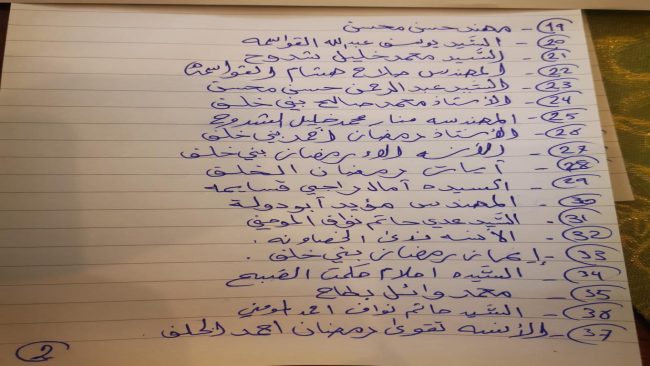 19 - مهند حسن محسن
20 - السيد يوسف عبدالله القواسمه
21 - السيد محمد خليل شدوح
22 - المهندس صلاح هشام القواسمة
23 - السيد عبدالرحمن حسن محسن
24 - الأستاذ محمد صالح بني خلف
25 - المهندسه منار محمد خليل الشدوح
26 - الأستاذ رمضان احمد بني خلف
27 - الآنسه الاء رمضان بني خلف
28 - آيات رمضان الخلف
29 - السيده آمال راجي قسايمه
30 - المهندس مؤيد أبو دولة
31 - السيد عدي حاتم نواف المومني
32 - الآنسه ندى الخصاونه .
33 - إيمان رمضان بني خلف .
34 - السيده احلام حكمت القبيع
35 - محمد وائل بطاح
36 - السيد حاتم نواف احمد المومني
37 - الآنسه تقوى رمضان احمد الخلف
2